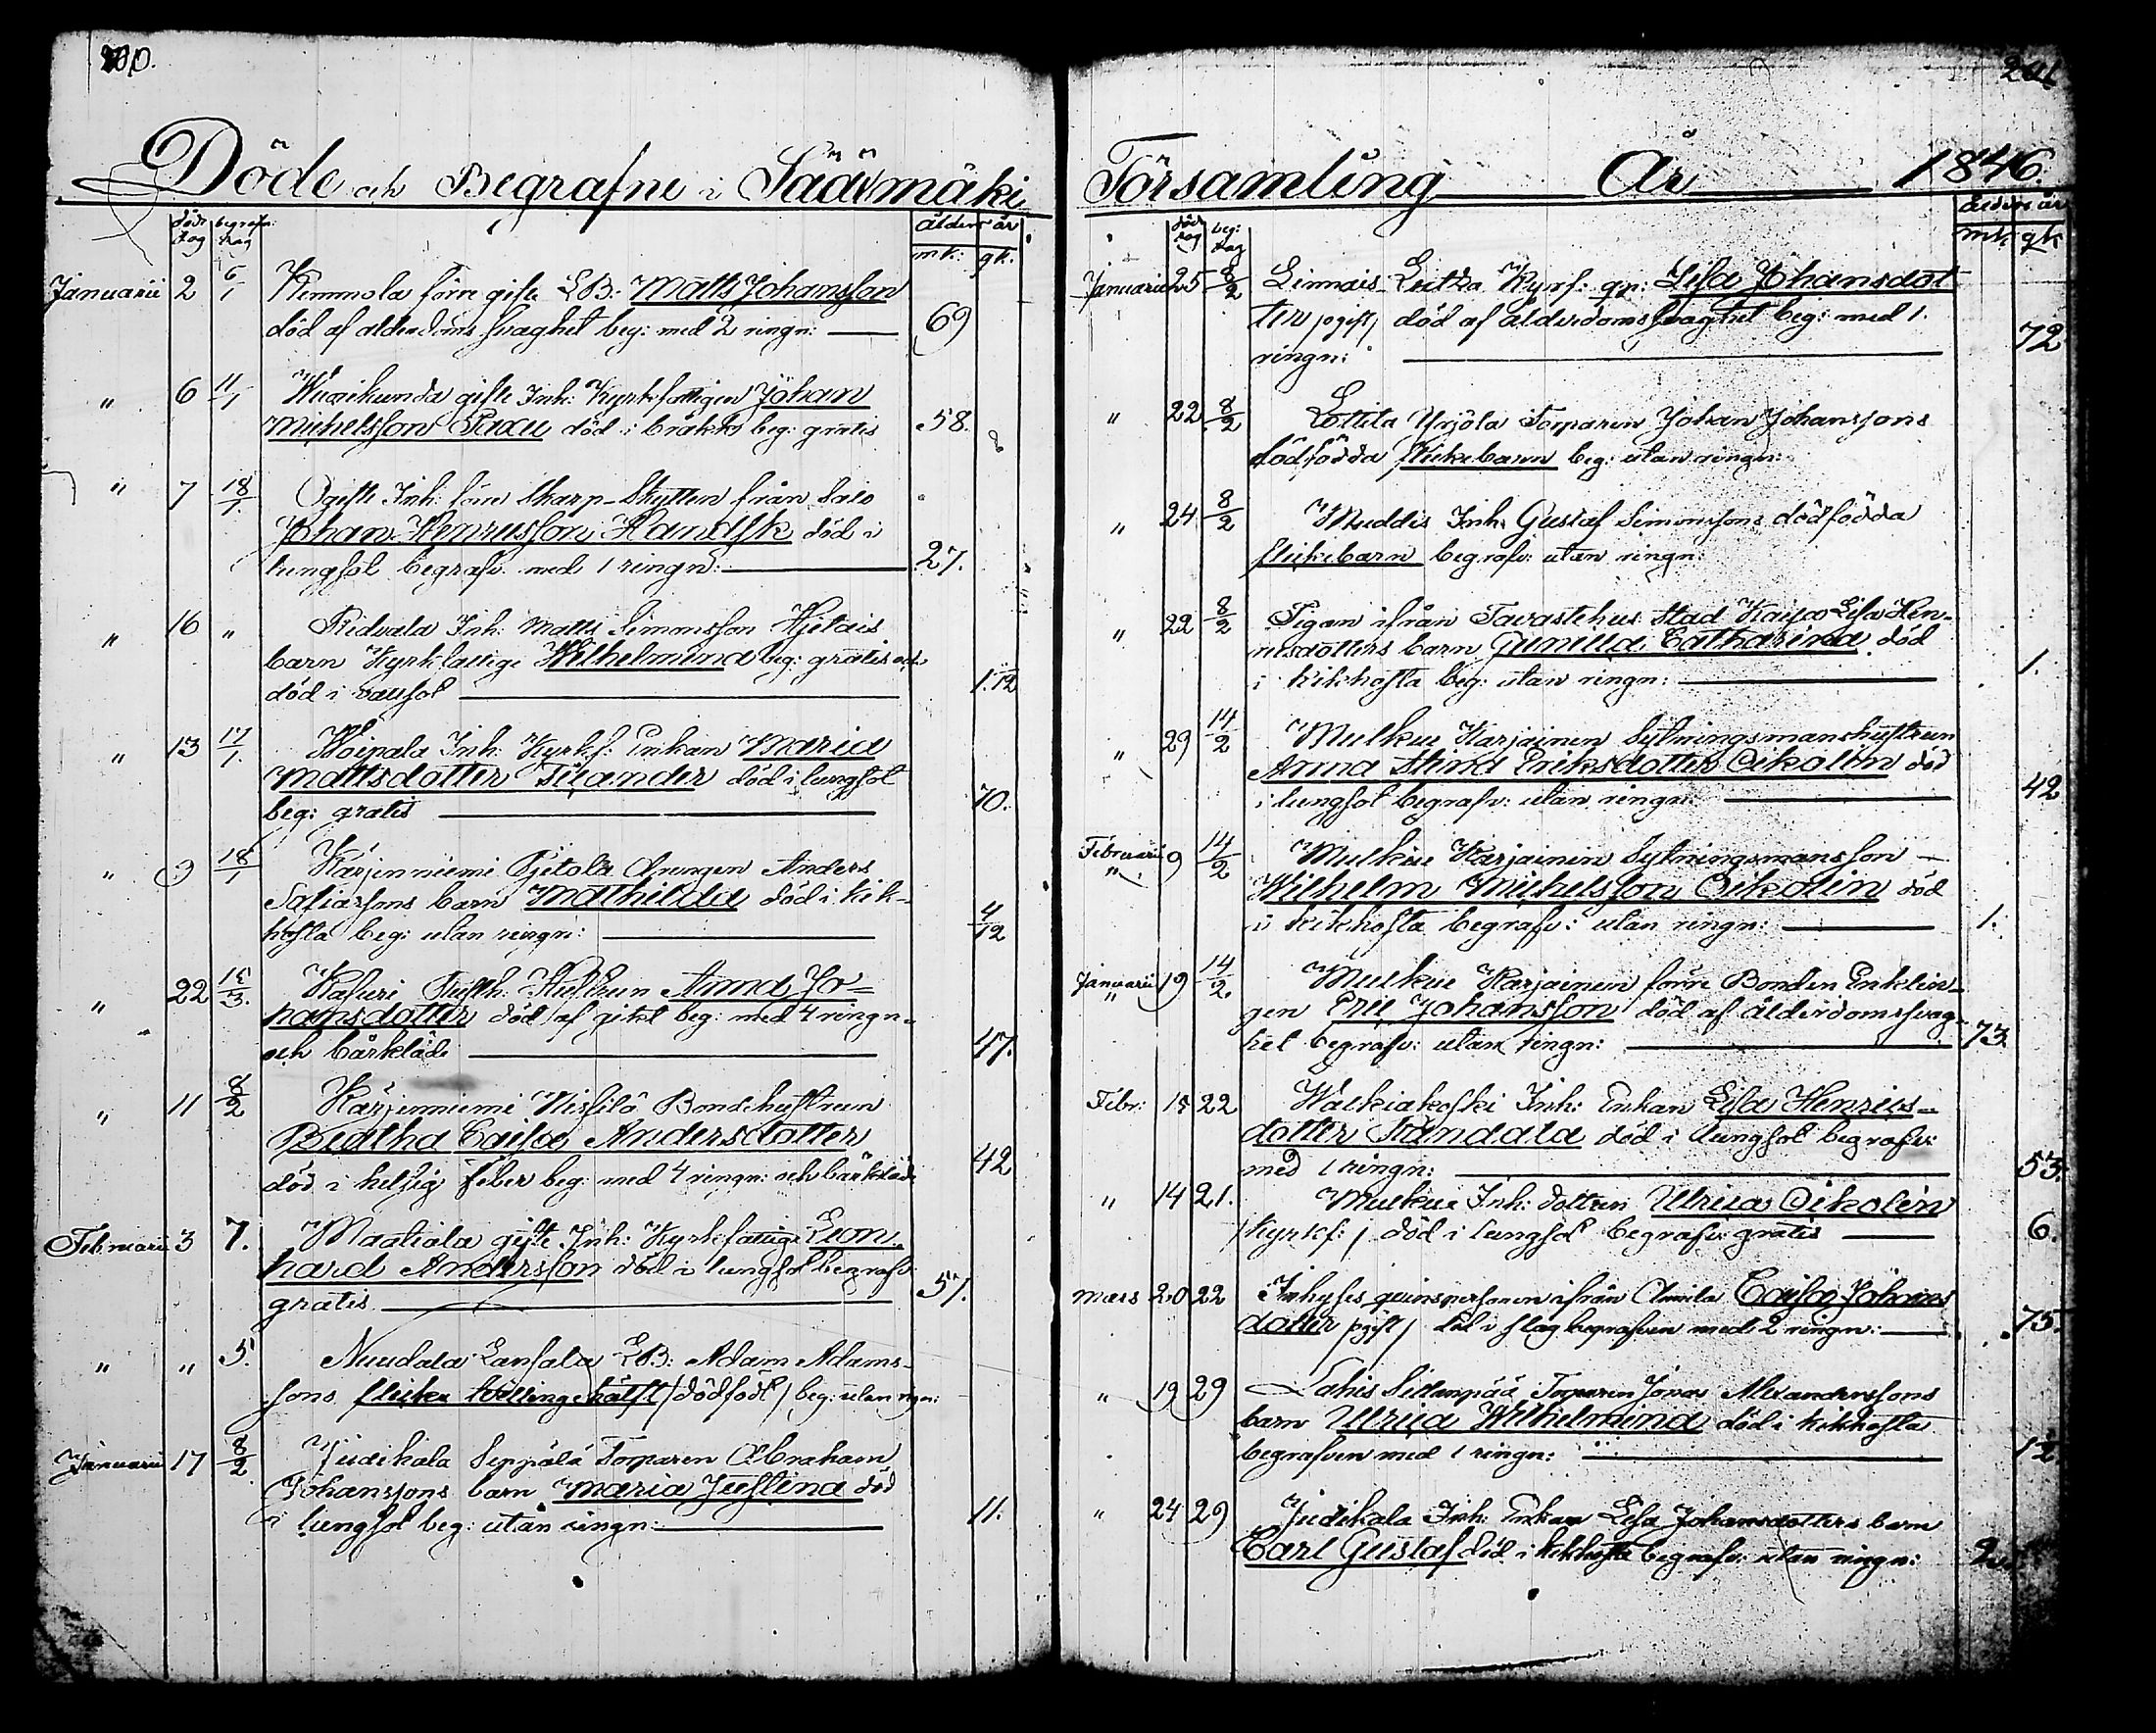 200.
Döde och Begrafne i Sääxmäki
död dag begrafn: dag Ålder år
mk: qk.
Januarii 2 6/1 Kemmola förre gifte LB: Matts Johansson
död af ålderdoms svaghet beg: med 2 ringn: 69
" 6 11/1 gifte Inh: Kyrkfattigen Johan
Michelsson död i bråkk beg: gratis 58.
" 7 18/1. Ogifte Inh: förre Skarp-Skytten från
Johan Henricsson död i
lungsot begrafv. med 1 ringn: 27.
" 16 " Ridvala Inh: Matts Simonsson Hjetais
barn Kyrkfattige Wilhelmina beg: gratis och
död i 1.12
" 13 17/1. Woipala Inh: Kyrkf: Enkan Maria
Mattsdotter död i lungsot
beg: gratis 70.
" 9 18/1 Kärjenniemi Anders
barn Mathilda död i kik-
hosta beg: utan ringn: 4/12
" 22 15/3. Hustrun Anna Jo=
hansdotter död af gikt beg: med 4 ringn.
och bårkläde 47.
" 11 8/2 Kärjenniemi Bondehustrun
Beatha Caisa Andersdotter
död i hetzig feber beg: med 4 ringn: och bårkläde 42
Februarii 3 7. Maatiala gifte Inh: Kyrkfattige Leon
hard Andersson död i lungsot begrafv:
gratis 57.
" " 5. Nuudala LB: Adam Adams-
sons flicka tvillinge hälft / dödfödt / beg: utan ringn:
Januarii 17 8/2 Judikala Seppälä Torparen Abraham
Johanssons barn Maria Justina död
i lungsot beg: utan ringn: 11.
201
Församling År 1846
död dag beg: dag Ålder år
mk. qk
Januarii 25 8/2 Linnais Kyrf: qp: Lisa Johansdot
ter /ogift/ död af ålderdomssvaghet beg: med 1
ringn: 72
" 22 8/2 Lottila Yrjölä Torparen Johan Johanssons
dödfödda flickebarn beg: utan ringn:
" 24 8/2 Muddis Inh: Gustaf Simonssons dödfödda
flickebarn begrafv: utan ringn:
" 22 8/2 Pigan ifrån Tavastehus Stad Kaisa Lisa Hen-
ricsdotters barn Gunilla Catharina död
i kikhosta beg: utan ringn: 1.
" 29 14/2 Mulkue Karjainen Sytningsmanshustrun
Anna Stina Eriksdotter Oikolin död
i lungsot begrafv: utan ringn: 42
Februarii 9 14/2 Mulkue Karjainen Sytningsmansson
" Wilhelm Michelsson Oikolin död
i kikhosta begrafv: utan ringn: 1.
Januarii 19 14/2. Mulkue Karjainen förre Bonden Enklin-
" gen Eric Johansson död af ålderdomssvag-
het begrafv: utan ringn: 73
Febr: 15 22 Walkiakoski Inh: Enkan Lisa Henrics-
dotter död i lungsot begrafv:
med 1 ringn: 53.
" 14 21. Mulkue Inh: dottren Ulrica Oikolin
/Kyrkf:/ död i lungsot begrafv: gratis 6.
Mars 20 22 Inhyses qvinspersonen ifrån Caisa Johans
dotter /ogift/ död i slag begrafven med 2 ringn: 75.
" 19 29 Lahis Torparen Jonas Alexanderssons
barn Ulrica Wilhelmina död i kikhosta
begrafven med 1 ringn: 12
" 24 29 Judikala Inh: Enkan Lisa Johansdotters barn
Carl Gustaf död i kikhosta begrafv: utan ringn: 2.